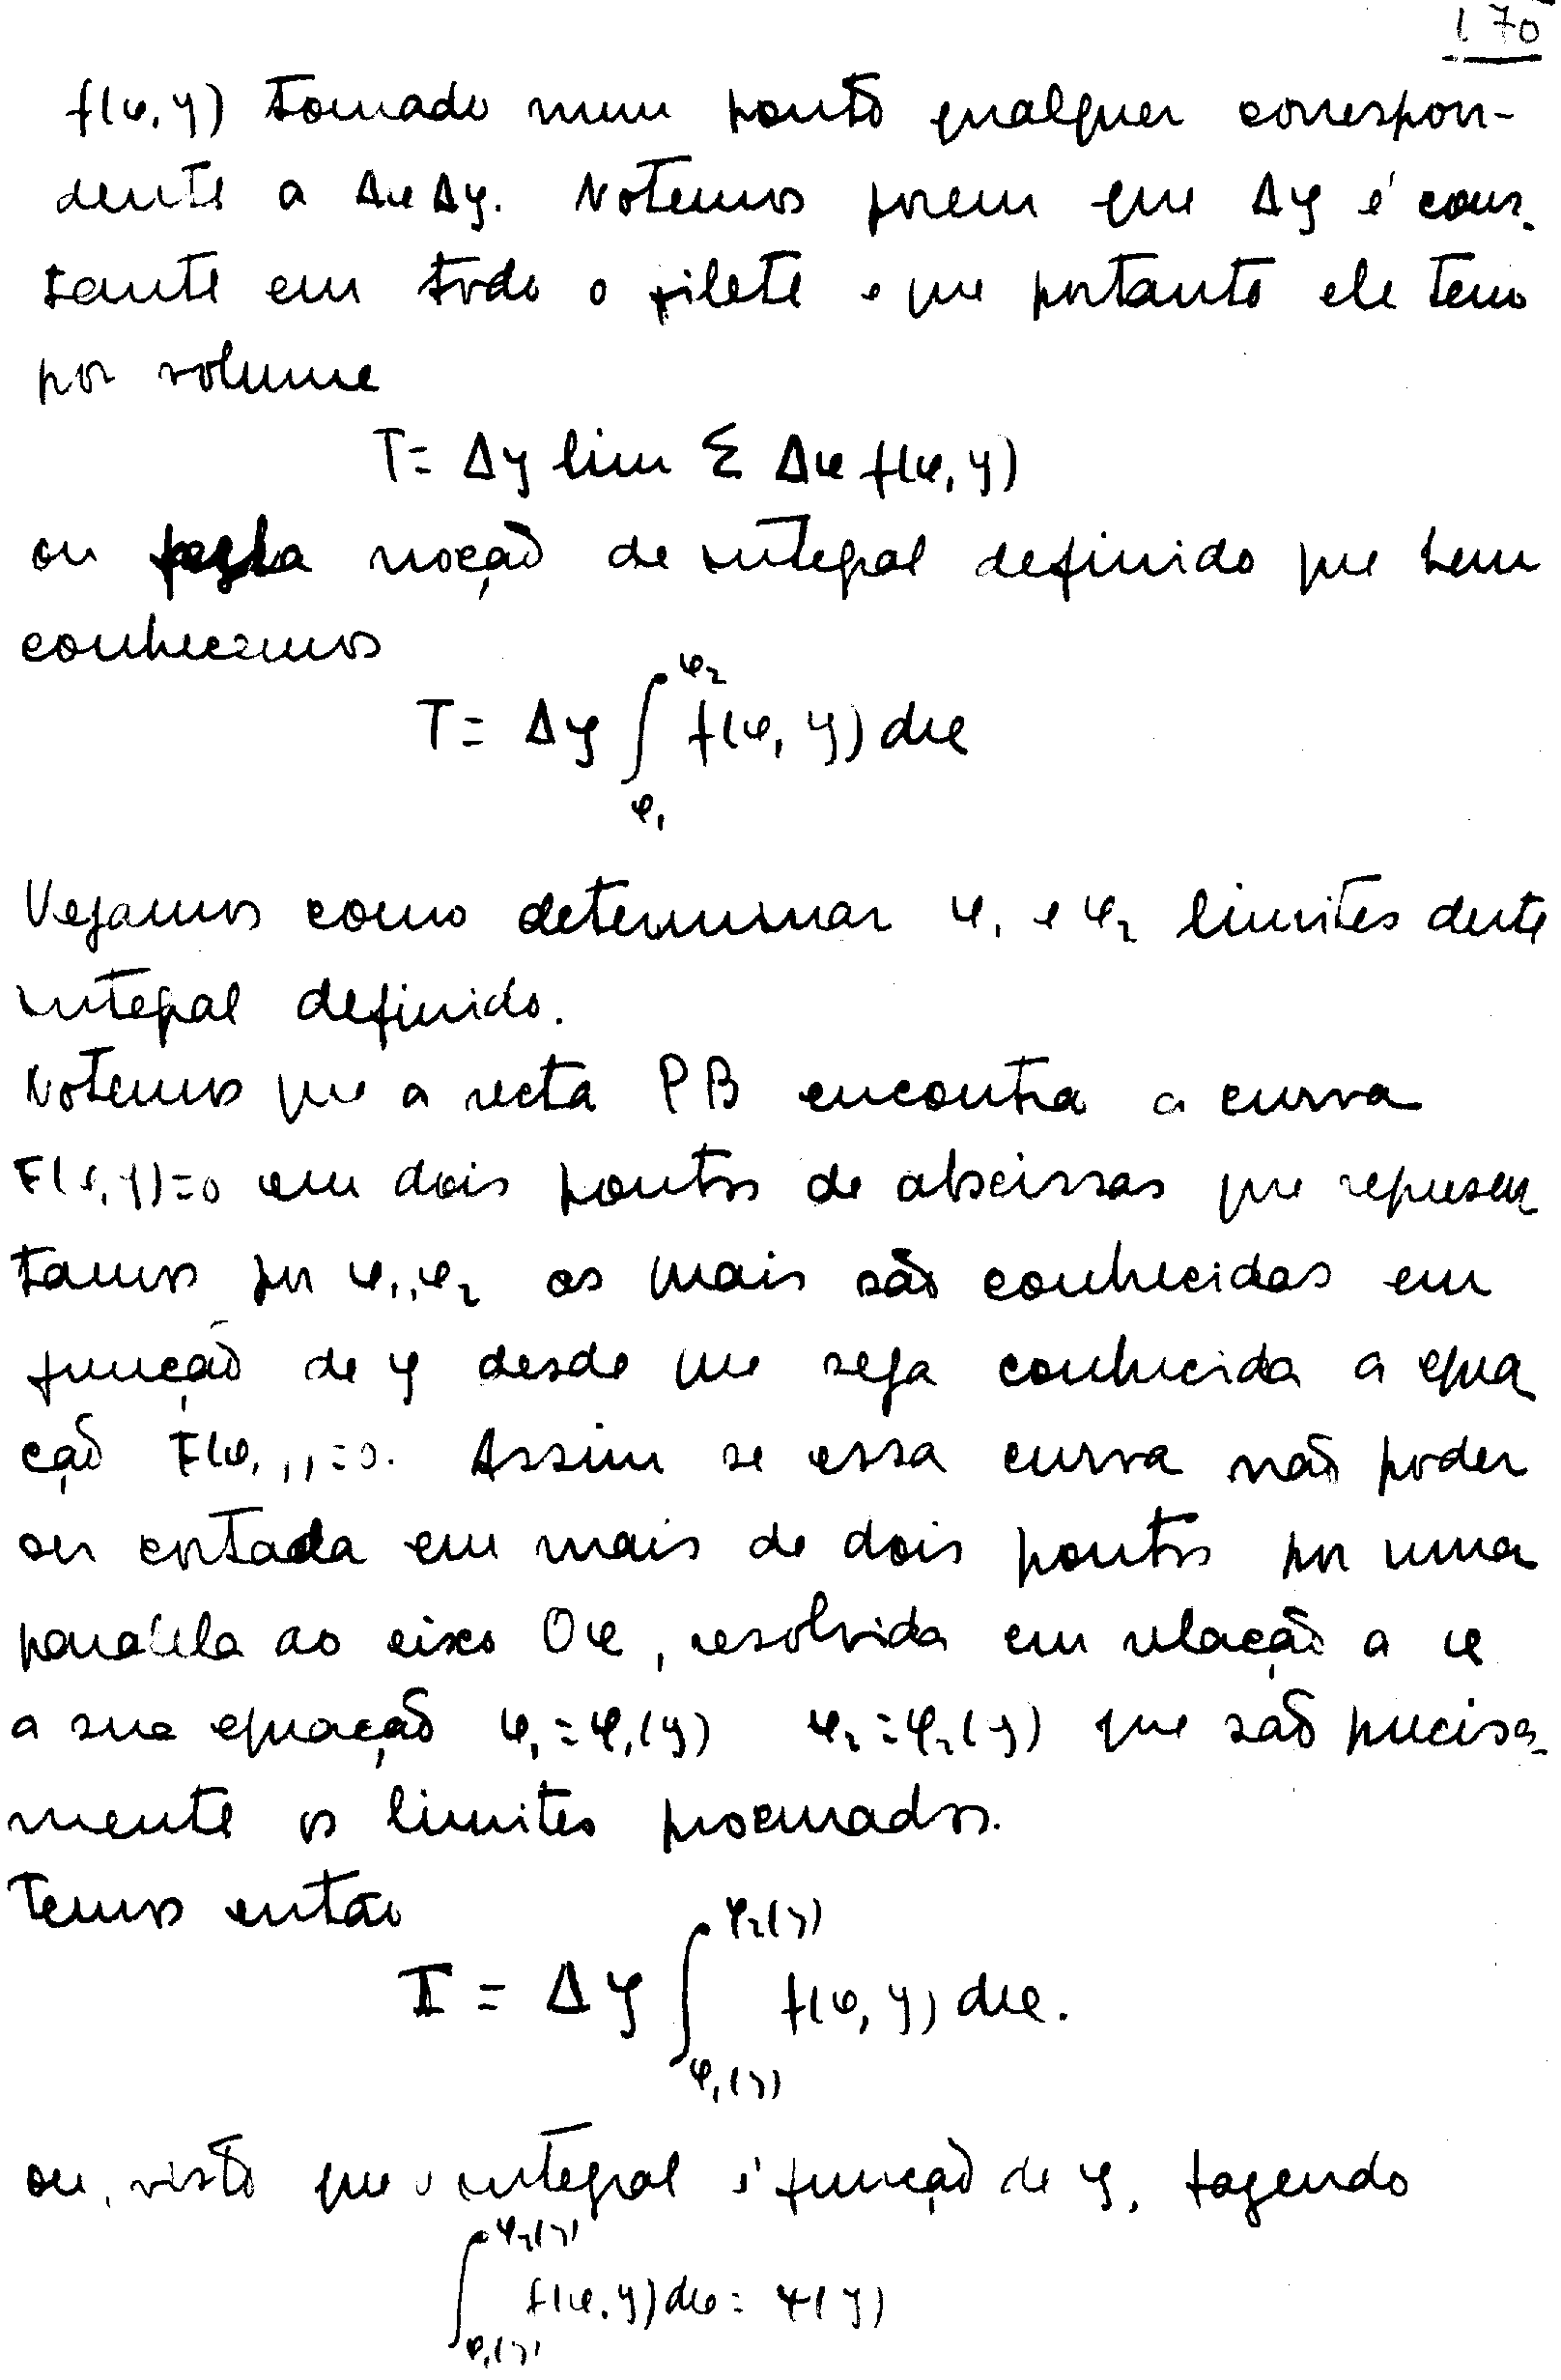 170
f(φ, y) tomado num ponto qualquer correspon-
dente a Δφ Δy. Notemos porem que Δy é cons-
tante em todo o filete e que portanto ele tem
por volume
T = Δy lim Σ Δφ f(φ, y)
ou pela noção de integral definido que bem
conhecemos
T = Δy ∫_{φ₁}^{φ₂} f(φ, y) dφ
Vejamos como determinar φ₁ e φ₂ limites deste
integral definido.
Notemos que a recta PB encontra a curva
F(φ, y)=0 em dois pontos de abscissas que represen
tamos por φ₁, φ₂ as quais são conhecidas em
função de y desde que seja conhecida a equa
ção F(φ, y)=0. Assim se essa curva não poder
ser cortada em mais de dois pontos por uma
paralela ao eixo Oφ, resolvida em relação a φ
a sua equação φ₁=φ₁(y) φ₂=φ₂(y) que são precisa-
mente os limites procurados.
Temos então
I = Δy ∫_{φ₁(y)}^{φ₂(y)} f(φ, y) dφ.
ou, visto que o integral é função de y, fazendo
∫_{φ₁(y)}^{φ₂(y)} f(φ, y) dφ = Ψ(y)